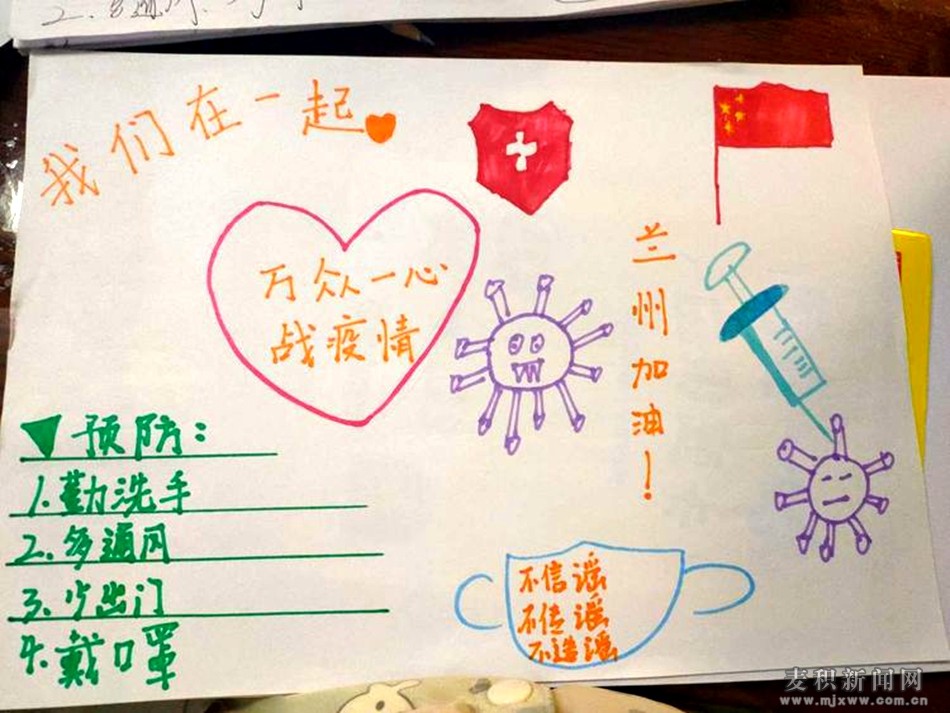 我们在一起
万众一心
战疫情
兰州加油！
预防：
1.勤洗手
2.多通风
3.少出门
4.戴口罩
不信谣
不传谣
不造谣
麦积新闻网
www.mjxww.com.cn